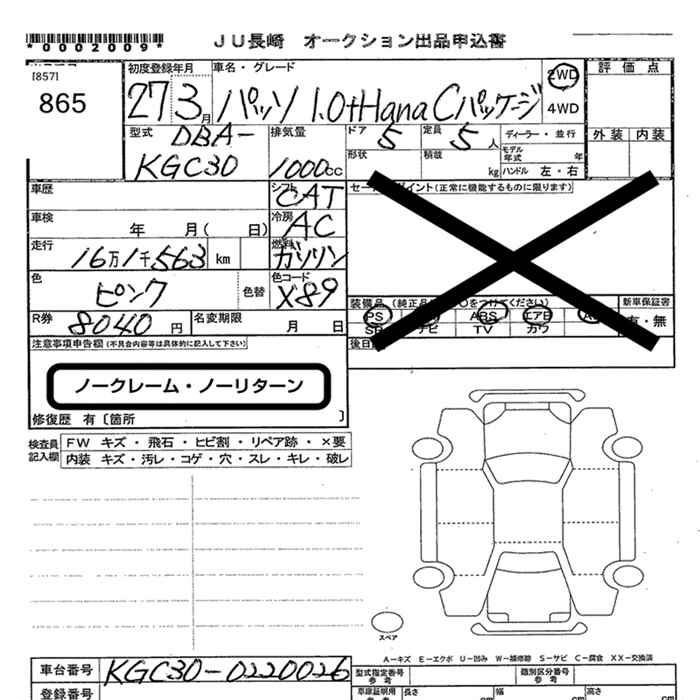 *0002009*
JU長崎 オークション出品申込書
[857]
865
初度登録年月
27 3月
車名・グレード
パッソ 1.0+Hana Cパッケージ
2WD
4WD
評価点
外装 内装
型式
DBA-
KGC30
排気量
1000cc
ドア 5
定員 5人
ディーラー・並行
形状
積載 kg
モデル年式 年
ハンドル 左・右
車歴
シフト CAT
車検 年 月( 日)
冷房 AC
走行 16万1千563 km
燃料 ガソリン
色 ピンク
色替
色コード X89
R券 8040 円
名変期限 月 日
セールスポイント(正常に機能するものに限ります)
装備品
新車保証書
有・無
PS ABS エアB
ナビ TV カワ
後日
注意事項申告欄(不具合内容等は具体的に記入して下さい)
ノークレーム・ノーリターン
修復歴 有〔箇所 〕
検査員記入欄
FW キズ・飛石・ヒビ割・リペア跡・×要
内装 キズ・汚レ・コゲ・穴・スレ・キレ・破レ
スペア
A―キズ E―エクボ U―凹み W―補修跡 S―サビ C―腐食 XX―交換済
車台番号 KGC30-0220026
型式指定番号 参考
類別区分番号 参考
登録番号
車庫証明用 参考
長さ cm
幅 cm
高さ cm